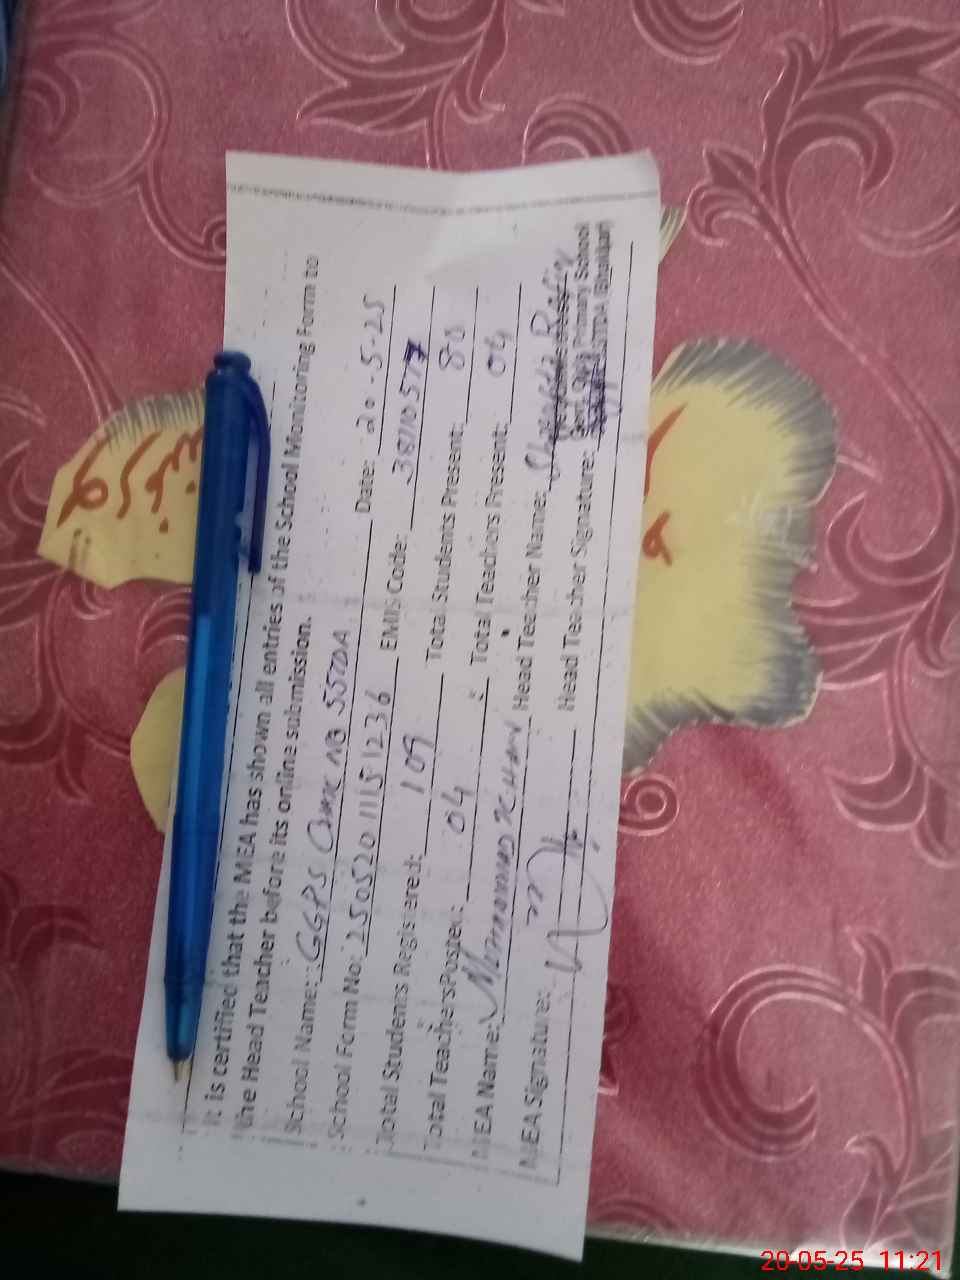 It is certified that the MEA has shown all entries of the School Monitoring Form to
the Head Teacher before its online submission.
School Name: GGPS Chak No 55TDA Date: 20-5-25
School Form No: 25052011151236 EMIS Code: 38110577
Total Students Registered: 109 Total Students Present: 80
Total Teachers Posted: 04 Total Teachers Present: 04
MEA Name: Muhammad Khan Head Teacher Name:
MEA Signature: Head Teacher Signature:
Govt. Primary School
TDA (Bhakkar)
20-05-25 11:21